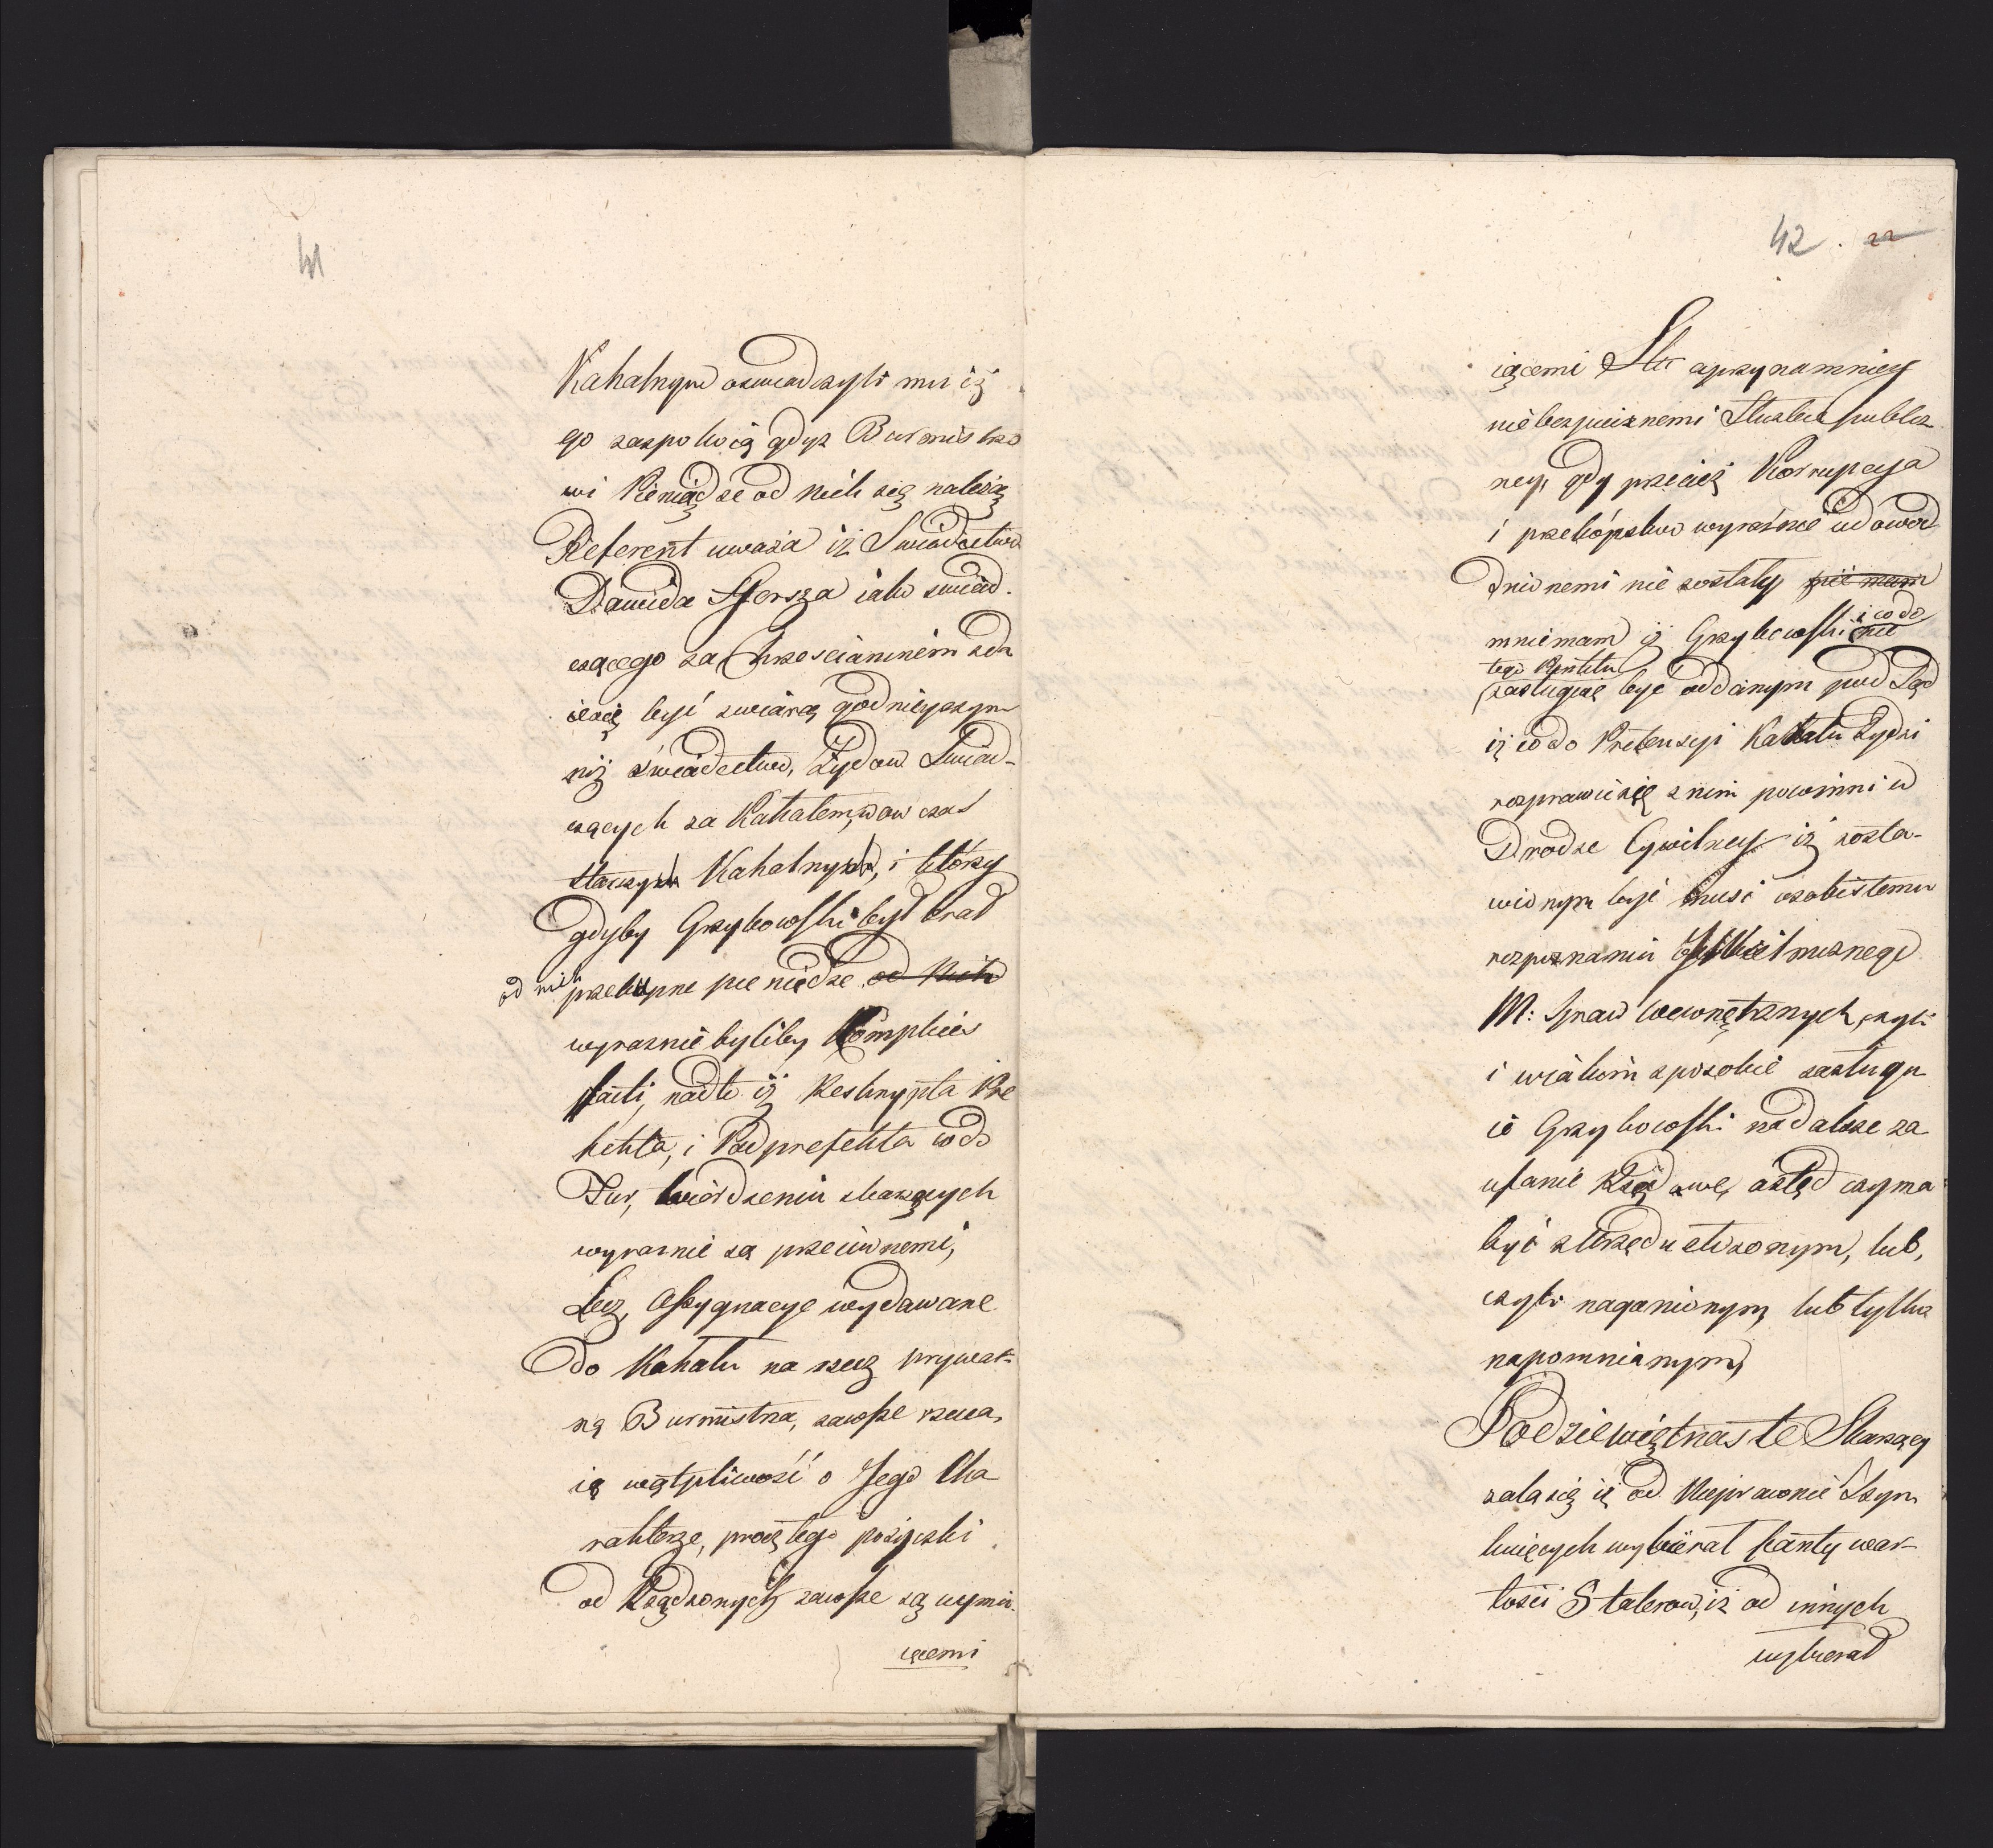 41
Kahalnym oswiadczyli mu iż
go zaspokoią gdyz Burmistrzo
wi Pieniądze od nich się należą
Referent uwaza iż Swiadectwo
Dawida Hersza iako swiad
czącego za Chrzescianinem zda
ie się być z wiarą godnieyszym
niż świadectwo, Zydow Swiad-
czących za Kahałem, wow czas
starszych Kahalnych, i którzy
gdyby Grzybowski był brał
od nich przekupne pieniądze od nich
wyraznie byliby Komplices
facti, nadto iż Reskrypta Pre
fekta, i Podprefekta co do
Fur, twierdzeniu skarzących
wyraznie są przeciwnemi,
Lecz, Assygnacye wydawane
do Kahału na rzecz prywat-
ną Burmistrza, zawsze rzuca,
ią wątpliwość o Jego Cha
rakterze, procz tego pożyczki
od Rządzonych zawsze są wymu-
iącemi
42. 22
iącemi a przynamniey
niebezpiecznemi Służbie publicz
ney, gdy przecież Korrupcya
i przekópstwo wyraźnie udowod
dnionemi nie zostały nie mam
mniemam iż Grzybowski i co do nie
tego Punktu
zasługuie być oddanym pod Sąd
iż co do Pretensyi Kahału Zydzi
rozprawić się z nim powinni w
Drodze Cywilney iż zosta-
wionym być musi osobistemu
rozpoznaniu JW Ministra
M: Spraw Wewnętrznych, czyli
i w iakim sposobie zasługu
ie Grzybowski na dalsze za
ufanie Rządowe, a ztąd czy ma
być z Urzędu złożonym, lub,
czyli naganionym, lub tylko
napomnianym,
Po dziewiętnaste Skarzący
zalą się iż od Nieprawnie Szyn
kuiących wybierał fanty war-
tości 5 talerow, iż od innych
wybierał